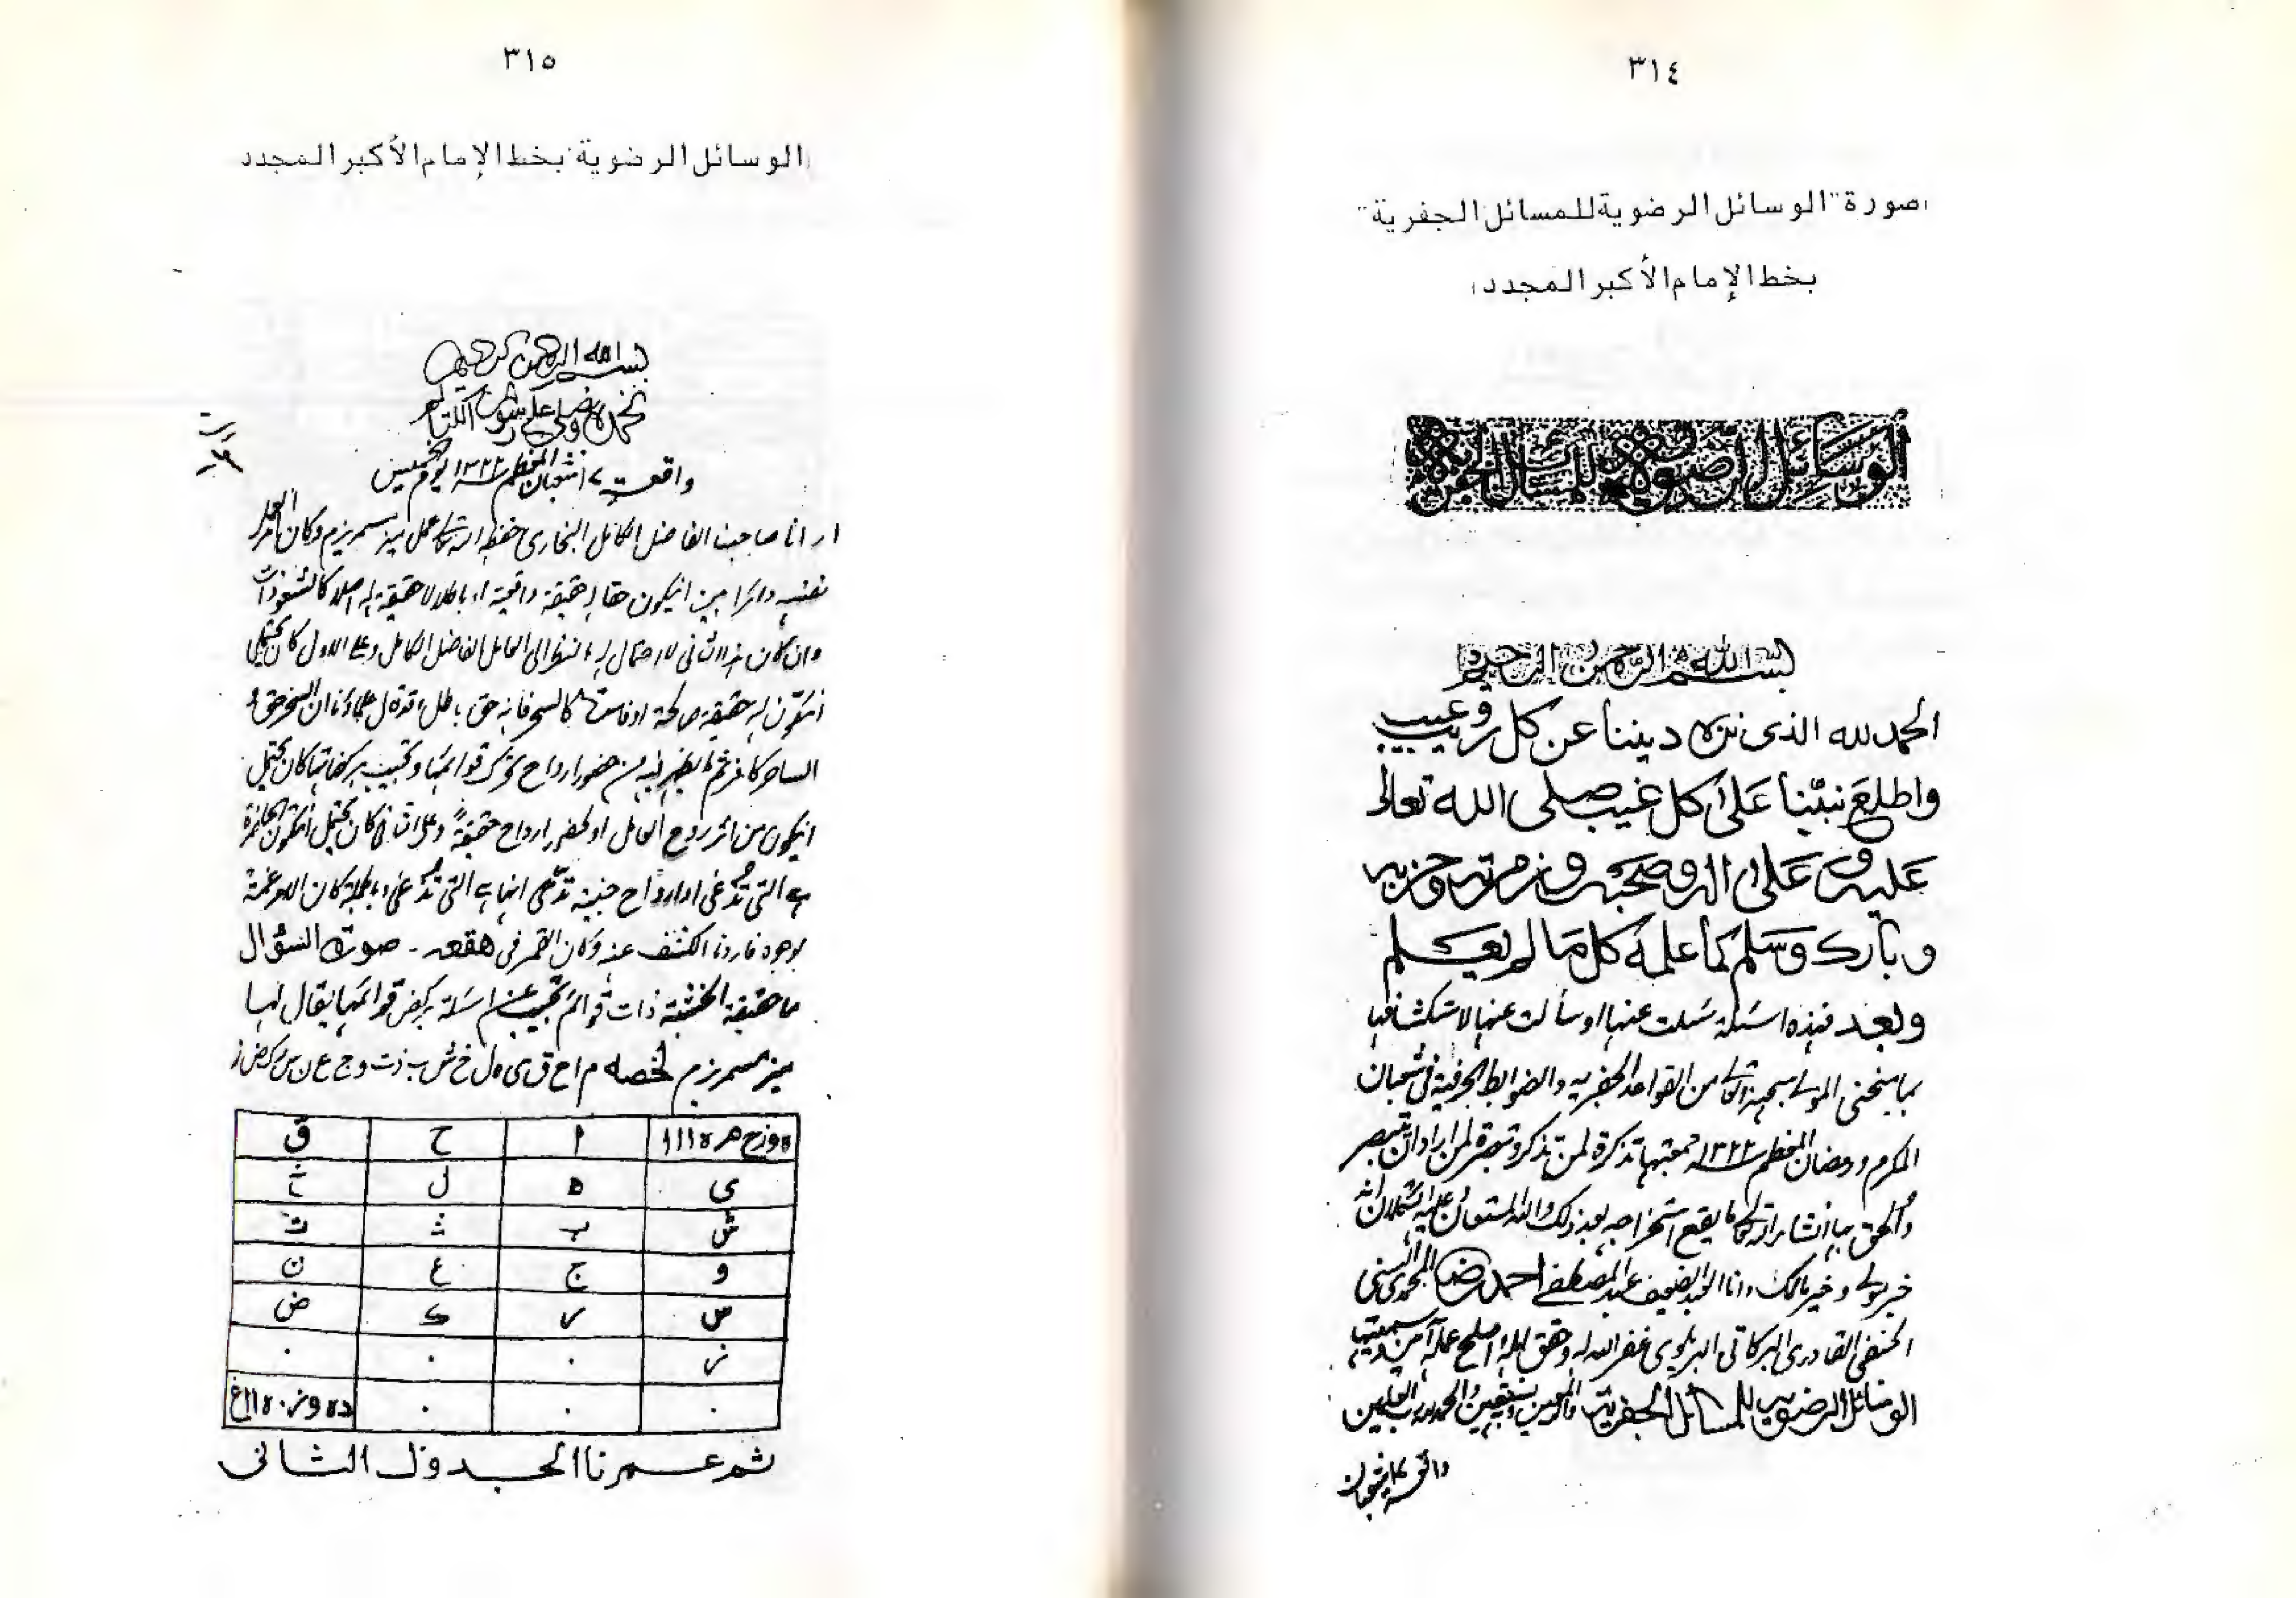 ٣١٤
صورة "الوسائل الرضوية للمسائل الجفرية"
بخط الإمام الأكبر المجدد
الوسائل الرضوية للمسائل الجفرية
بسم الله الرحمن الرحيم
الحمد لله الذى نزه ديننا عن كل ريب وعيب
واطلع نبينا على كل غيب صلى الله تعالى
عليه وعلى اله وصحبه وزمرته وحزبه
وبارك وسلم كما علمه كل ما لم يعلم
وبعد فهذه اسئلة سئلت عنها او سألت عنها لاستكشافها
بما منحنى المولى سبحنه وتعالى من القواعد الجفرية والضوابط الحرفية فى شعبان
المكرم ورمضان المعظم ١٣٢٢ جمعتها تذكرة لمن تذكر وتبصرة لمن اراد ان يتبصر
والحق بها ان شاء الله تعالى ما يقع استخراجه بعد ذلك والله المستعان وعليه التكلان انه
خير مولى وخير مالك وانا العبد الضعيف عبد المصطفى احمد رضا المحمدى السنى
الحنفى القادرى البركاتى البريلوى غفر الله له وحقق امله واصلح عمله آمين وسميتها
الوسائل الرضوية للمسائل الجفرية والحمد لله رب العلمين
٣١٥
الوسائل الرضوية بخط الإمام الأكبر المجدد
بسم الله الرحمن الرحيم
نحمده ونصلى على رسوله الكريم
واقعة ٧ شعبان المعظم ١٣٢٢ يوم الخميس
ارانا صاحبنا الفاضل الكامل البخارى حفظه الله تعالى عمل ميز مسمريزم وكان الامر
نفسه دائرا بين ان يكون حقا له حقيقة واقعية او باطلا لا حقيقة له اصلا كالشعوذات
وان كان هذا الثانى لا احتمال له بالنظر الى العامل الفاضل الكامل وعلى الاول كان يحتمل
ان تكون له حقيقة صالحة او فاسدة كالسحر فانه حق باطل وقد قال علماؤنا ان السحر حق و
الساحر كافر ثم ما يظهر فيه من حضور ارواح تحرك قوائمها وتجيب بركضاتها كان يحتمل
ان يكون من اثر روح العامل او لحضور ارواح حقيقة وعلى الثانى كان يحتمل ان تكون
هى التى تدعى او ارواح خبيثة تدعى انها هى التى تدعى
بوجوه فاردنا الكشف عنه وكان القمر فى هقعه - صورة السؤال
ما حقيقة الخشبة ذات قوائم تجيب عن اسئلة بركض قوائمها يقال لها
ميز مسمرزم لخصه م ا ح ق ى ه ل خ ش ب ذ ت و ج ع ن س ر ك ض ز
ا ح ق
ى ه ل خ
ش ب ذ ت
و ج ع ن
ص ر ك ض
ز ٠ ٠ ٠
٠ ٠ ٠
ثم عمرنا الجدول الثانى